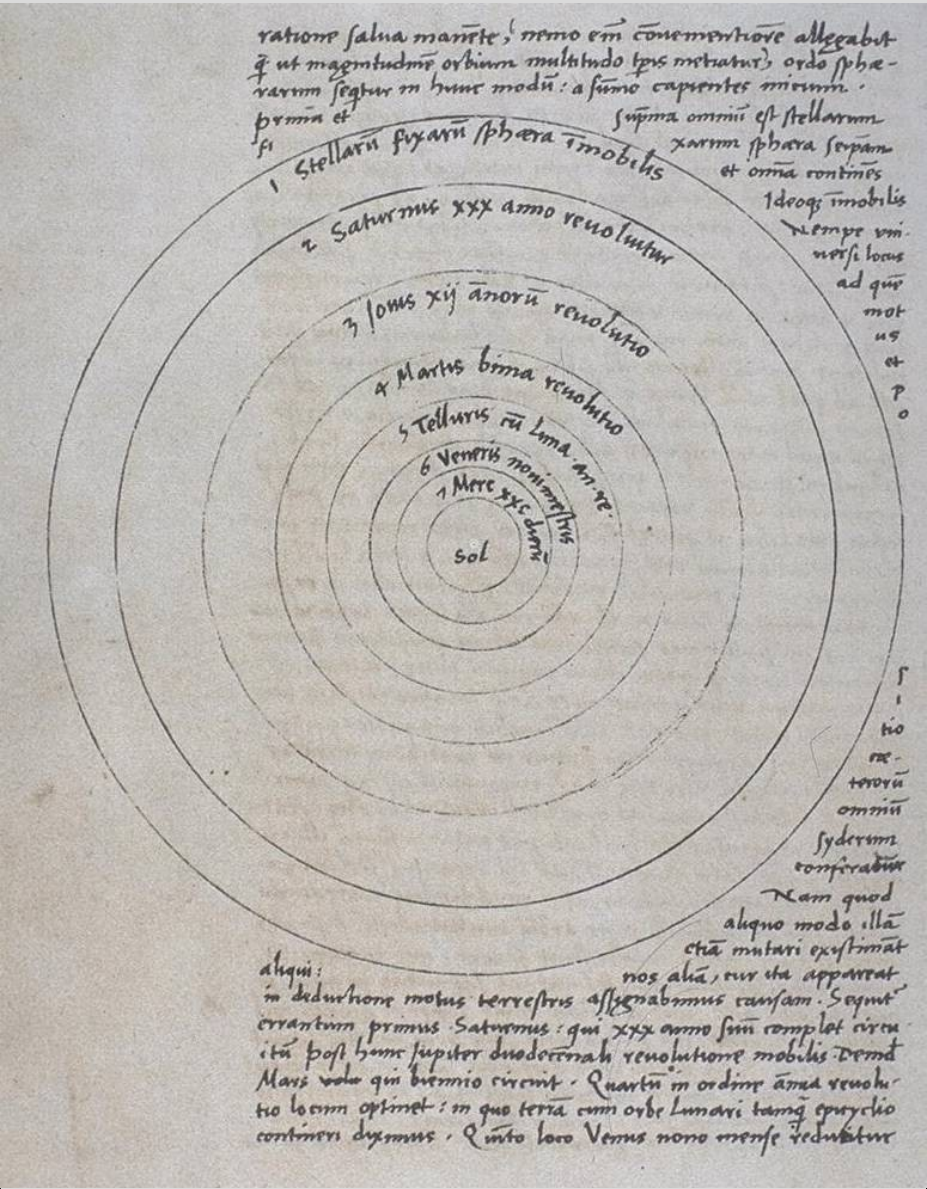 ratione salua manēte, nemo em̄ cōuementiorē allegabit
q̄ ut magnitudinē orbium multitudo tp̄is metiatur, ordo sphæ-
rarum seq̄tur in hunc modū: a sūmo capientes inicium.
prima et sup̄ma omniū est stellarum
fi xarum sphæra seip̄am
et om̄ia continēs
Ideoq; īmobilis
Nempe vni-
uersi locus
ad quē
mot
us
et
p
o
1 Stellarū fixarū sphæra īmobilis
2 Saturnus xxx anno reuoluitur
3 Jouis xij ānorū reuolutio
4 Martis bima reuolutio
5 Telluris cū Luna. an. re.
6 Veneris nonimestris
7 Merc xxc dierū
Sol
s
i
tio
cæ-
terorū
omniū
syderum
conferatur
Nam quod
aliquo modo illā
etiā mutari existimāt
aliqui: nos aliā, cur ita appareat
in deductione motus terrestris assignabimus causam. Sequit̄
errantium primus Saturnus: qui xxx anno suū complet circu
itū post hunc Jupiter duodecēnali reuolutione mobilis Deind
Mars qui biennio circuit. Quartū in ordine ānua reuolu-
tio locum optinet: in quo terrā cum orbe Lunari tamq̄ epicyclio
contineri diximus. Quīto loco Venus nono mense reducitur